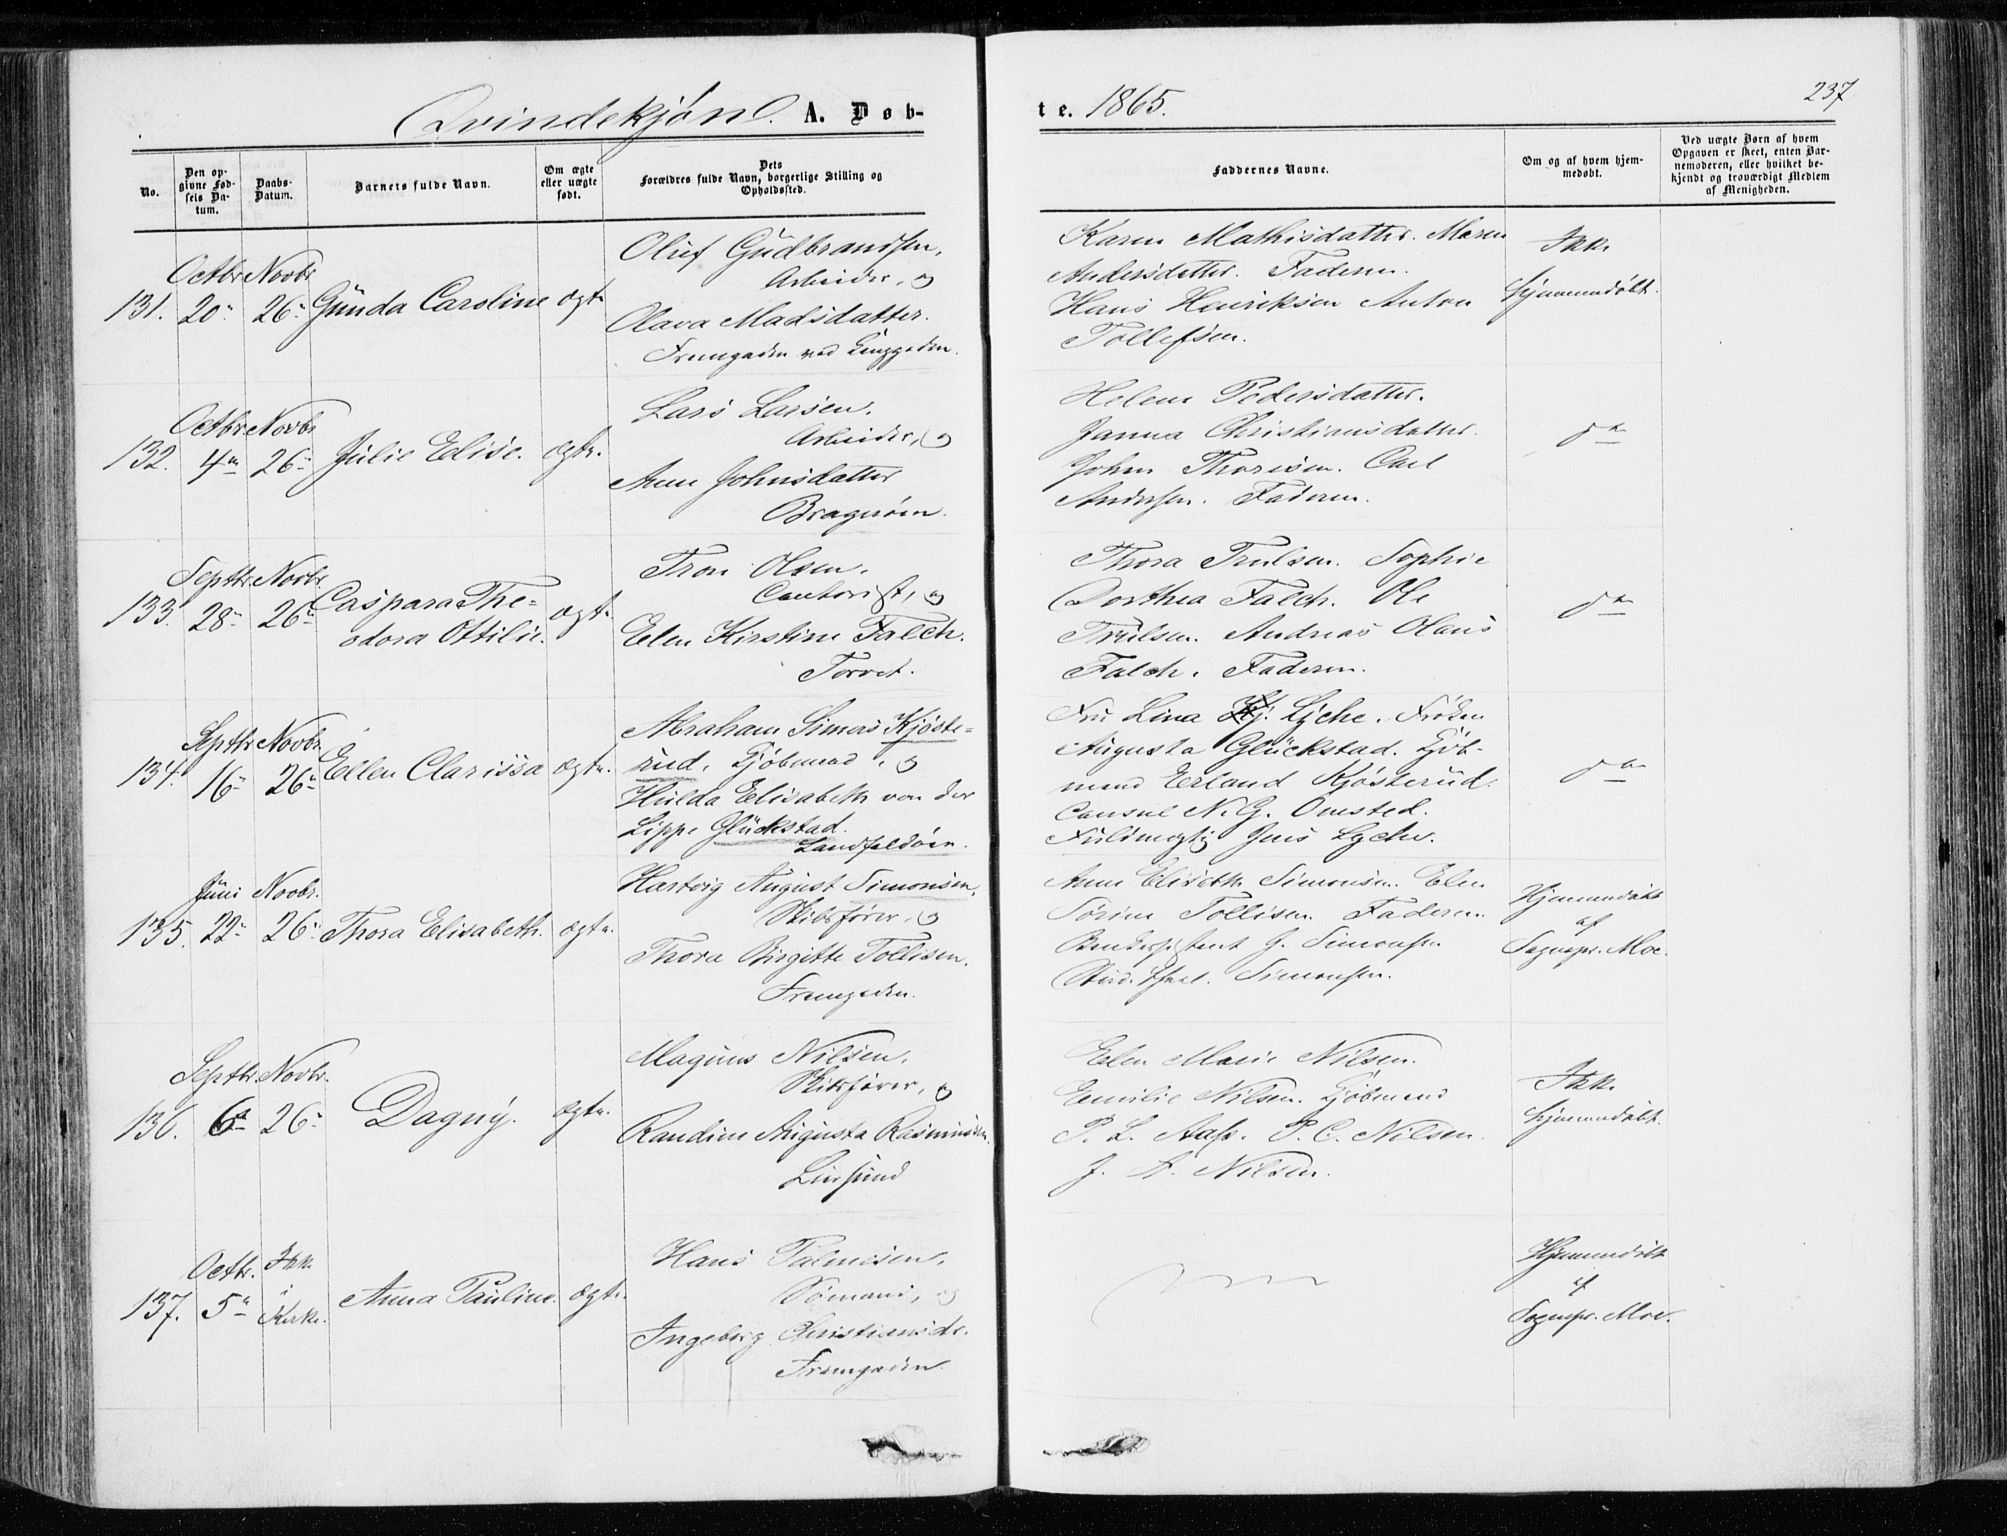 Qvindekjøn. A. Døb-
te. 1865.
237
No.
Den op-
givne Fød-
sels Da-
tum.
Daabs-
Datum.
Barnets fulde Navn.
Om ægte
eller uægte
født.
Dets
Forældres fulde Navn, borgerlige Stilling og
Opholdssted.
Faddernes Navne.
Om og af hvem hjem-
medøbt.
Ved uægte Børn af hvem
Opgaven er skeet, enten Bar-
nemoderen, eller hvilket be-
kjendt og troværdigt Medlem
af Menigheden.
131.
Octbr
20
Novbr
26
Gunda Caroline
ægte
Oluf Gudbrandsen,
Arbeider, og
Olava Madsdatter.
Fremgaden ved
Karen Mathisdatter. Maren
Andersdatter. Faderen.
Hans Henriksen Anton
Tollefsen.
Ikke
hjemmedøbt.
132.
Octbr
4
Novbr
26
Julie Elise.
ægte.
Lars Larsen,
Arbeider, og
Anne Johnsdatter
Bragerøen.
Helene Pedersdatter.
Janna Christiansdatter.
John Thoresen. Carl
Andersen. Faderen.
do
133.
Septbr
28
Novbr
26
Caspara The-
odora Ottilie.
ægte
Tron Olsen,
Contorist, og
Elen Kirstine Falch.
Torvet.
Thora Trulsen. Sophie
Dorthea Falch. Ole
Trulsen. Andreas Olaus
Falch. Faderen.
do
134.
Septbr
16
Novbr
26
Ellen Clarissa
ægte.
Abraham Simers Kjøste-
rud, Kjøbmand, og
Hulda Elisabeth von der
Lippe Glückstad.
Landfaldøen.
Fru Lina Lyche. Frøken
Augusta Glückstad. Kjøb-
mand Erland Kjøsterud
Consul N. G. Omsted.
Fuldmægtig Jens Lyche.
do
135.
Juni
22
Novbr.
26
Thora Elisabeth.
ægte.
Hartvig August Simonsen,
Skibsfører, og
Thora Birgitte Tollisen.
Fremgaden.
Anne Elisabeth Simonsen. Elen
Sørine Tollisen. Faderen
J. Simonsen.
Stud. Simonsen.
Hjemmedøbt
af
Sognepr. Moe.
136.
Septbr.
6
Novbr.
26
Dagny.
ægte.
Magnus Nilsen,
Skibsfører, og
Randine Augusta Rasmussen.
Elen Marie Nilsen.
Emilie Nilsen. Kjøbmand
P. L. Aass. P. C. Nilsen
J. A. Nilsen.
Ikke
hjemmedøbt.
137.
Octbr.
5
Ikke
i
Kirke.
Anna Pauline.
ægte.
Hans Palmesen,
Sømand, og
Ingeborg Christiansdr.
Fremgaden.
Hjemmedøbt
af
Sognepr. Moe.